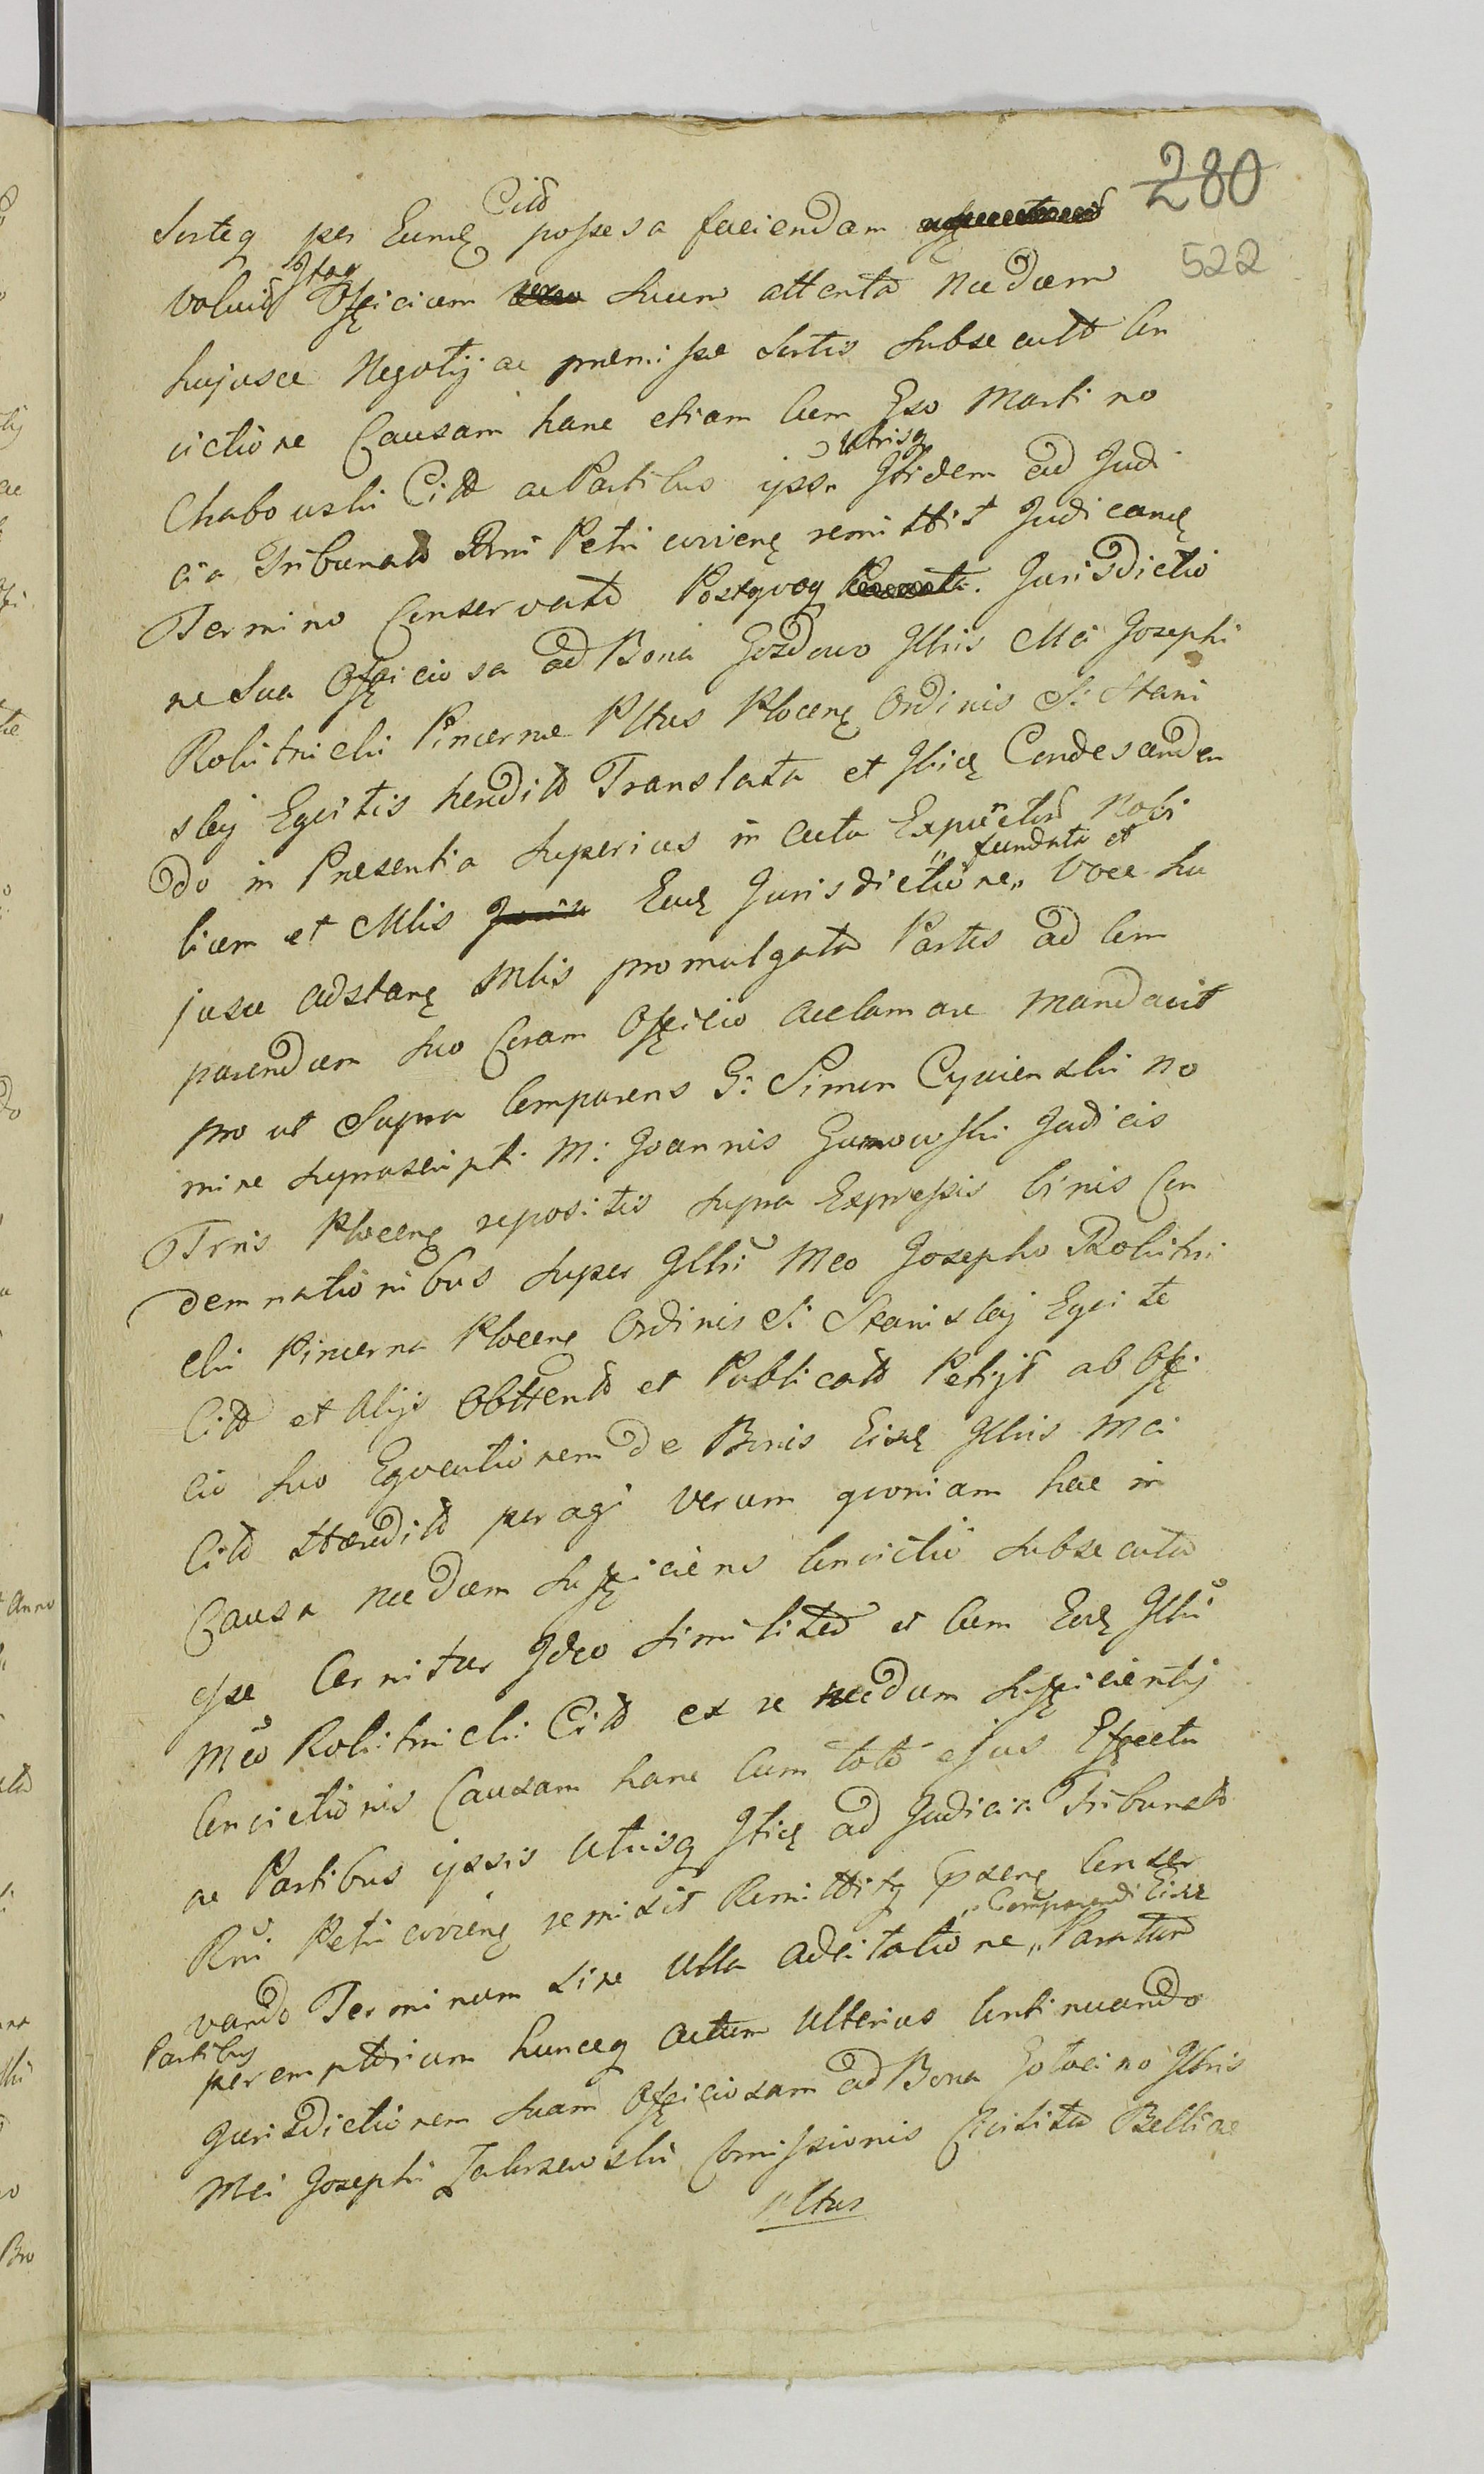 280
522
Citd
Sorteq per Eundę possesa faciendam
Itaq
voluit Officium suum attenta nudum
hujusce Negotij ac premissae Sortis Subsecutt Con
victione Causam hanc etiam Cum Gso Martino
Utrisq
Chabowski Citt ac Partibus ipsn Ibidem ad Judi
cia Tribunatt Rni Petri coviens remittit Judicandę
Termino Conservato Postquoq Jurisdictio
ne Sua Officiosa ad Bona Gozdowo Illris Mci Josephi
Rokitnicki Pincernae Pltus Plocenę Ordinis S: Stani
slaj Eqcitis hendito Translata et Ibidę Condesanden
do in Presentia Superius in acta Expunctor Nobi
fundata et
lium et Mlis Eadę Jurisdictione,, Voce hu
jusce adstanę Mlis promulgata Partes ad Com
parendum suo Coram Officio acclamare Mandavit
pro ut Supra Comparens G: Simon Cywienski no
mine Suprascripti M: Joannis Gumowski Judicis
Trris Plocenę repositis Supra Expressis binis Con
demnationibus Super Illri Mco Josepho Rokitni
cki Pincerna Plocenę Ordinis S: Stanislaj Eqcite
Citt et Alijs Obttento et Publicato Petijt ab Offi
cio suo Exqvutionem De Bonis Eisdę Illris Mci
Citt Haerdito peragi verum qvoniam hac in
Causa nudum Sufficiens Convictio Subsecuta
esse Cernitur Ideo similiter et Cum Eodę Illri
Mco Rokitnicki Citt ex re needum Sufficientij
Convictionis Causam hanc Cum toto ejus Effectu
ac Partibus ipsis Utrisq Ibidę ad Judicia Tribunatt
Rni Petri coviens remisit Remittitq Conser
,,Comparendi Eisdę
vando Terminum sine Ulla adcitatione,, Partium
Partibus
peremptorium huncq actum Ulterius Continuando
Jurisdictionem suam Officiosam ad Bona Gotocino Illris
Mci Josephi Zakrzewski Comissionis Civilito Bellicae
Pltus